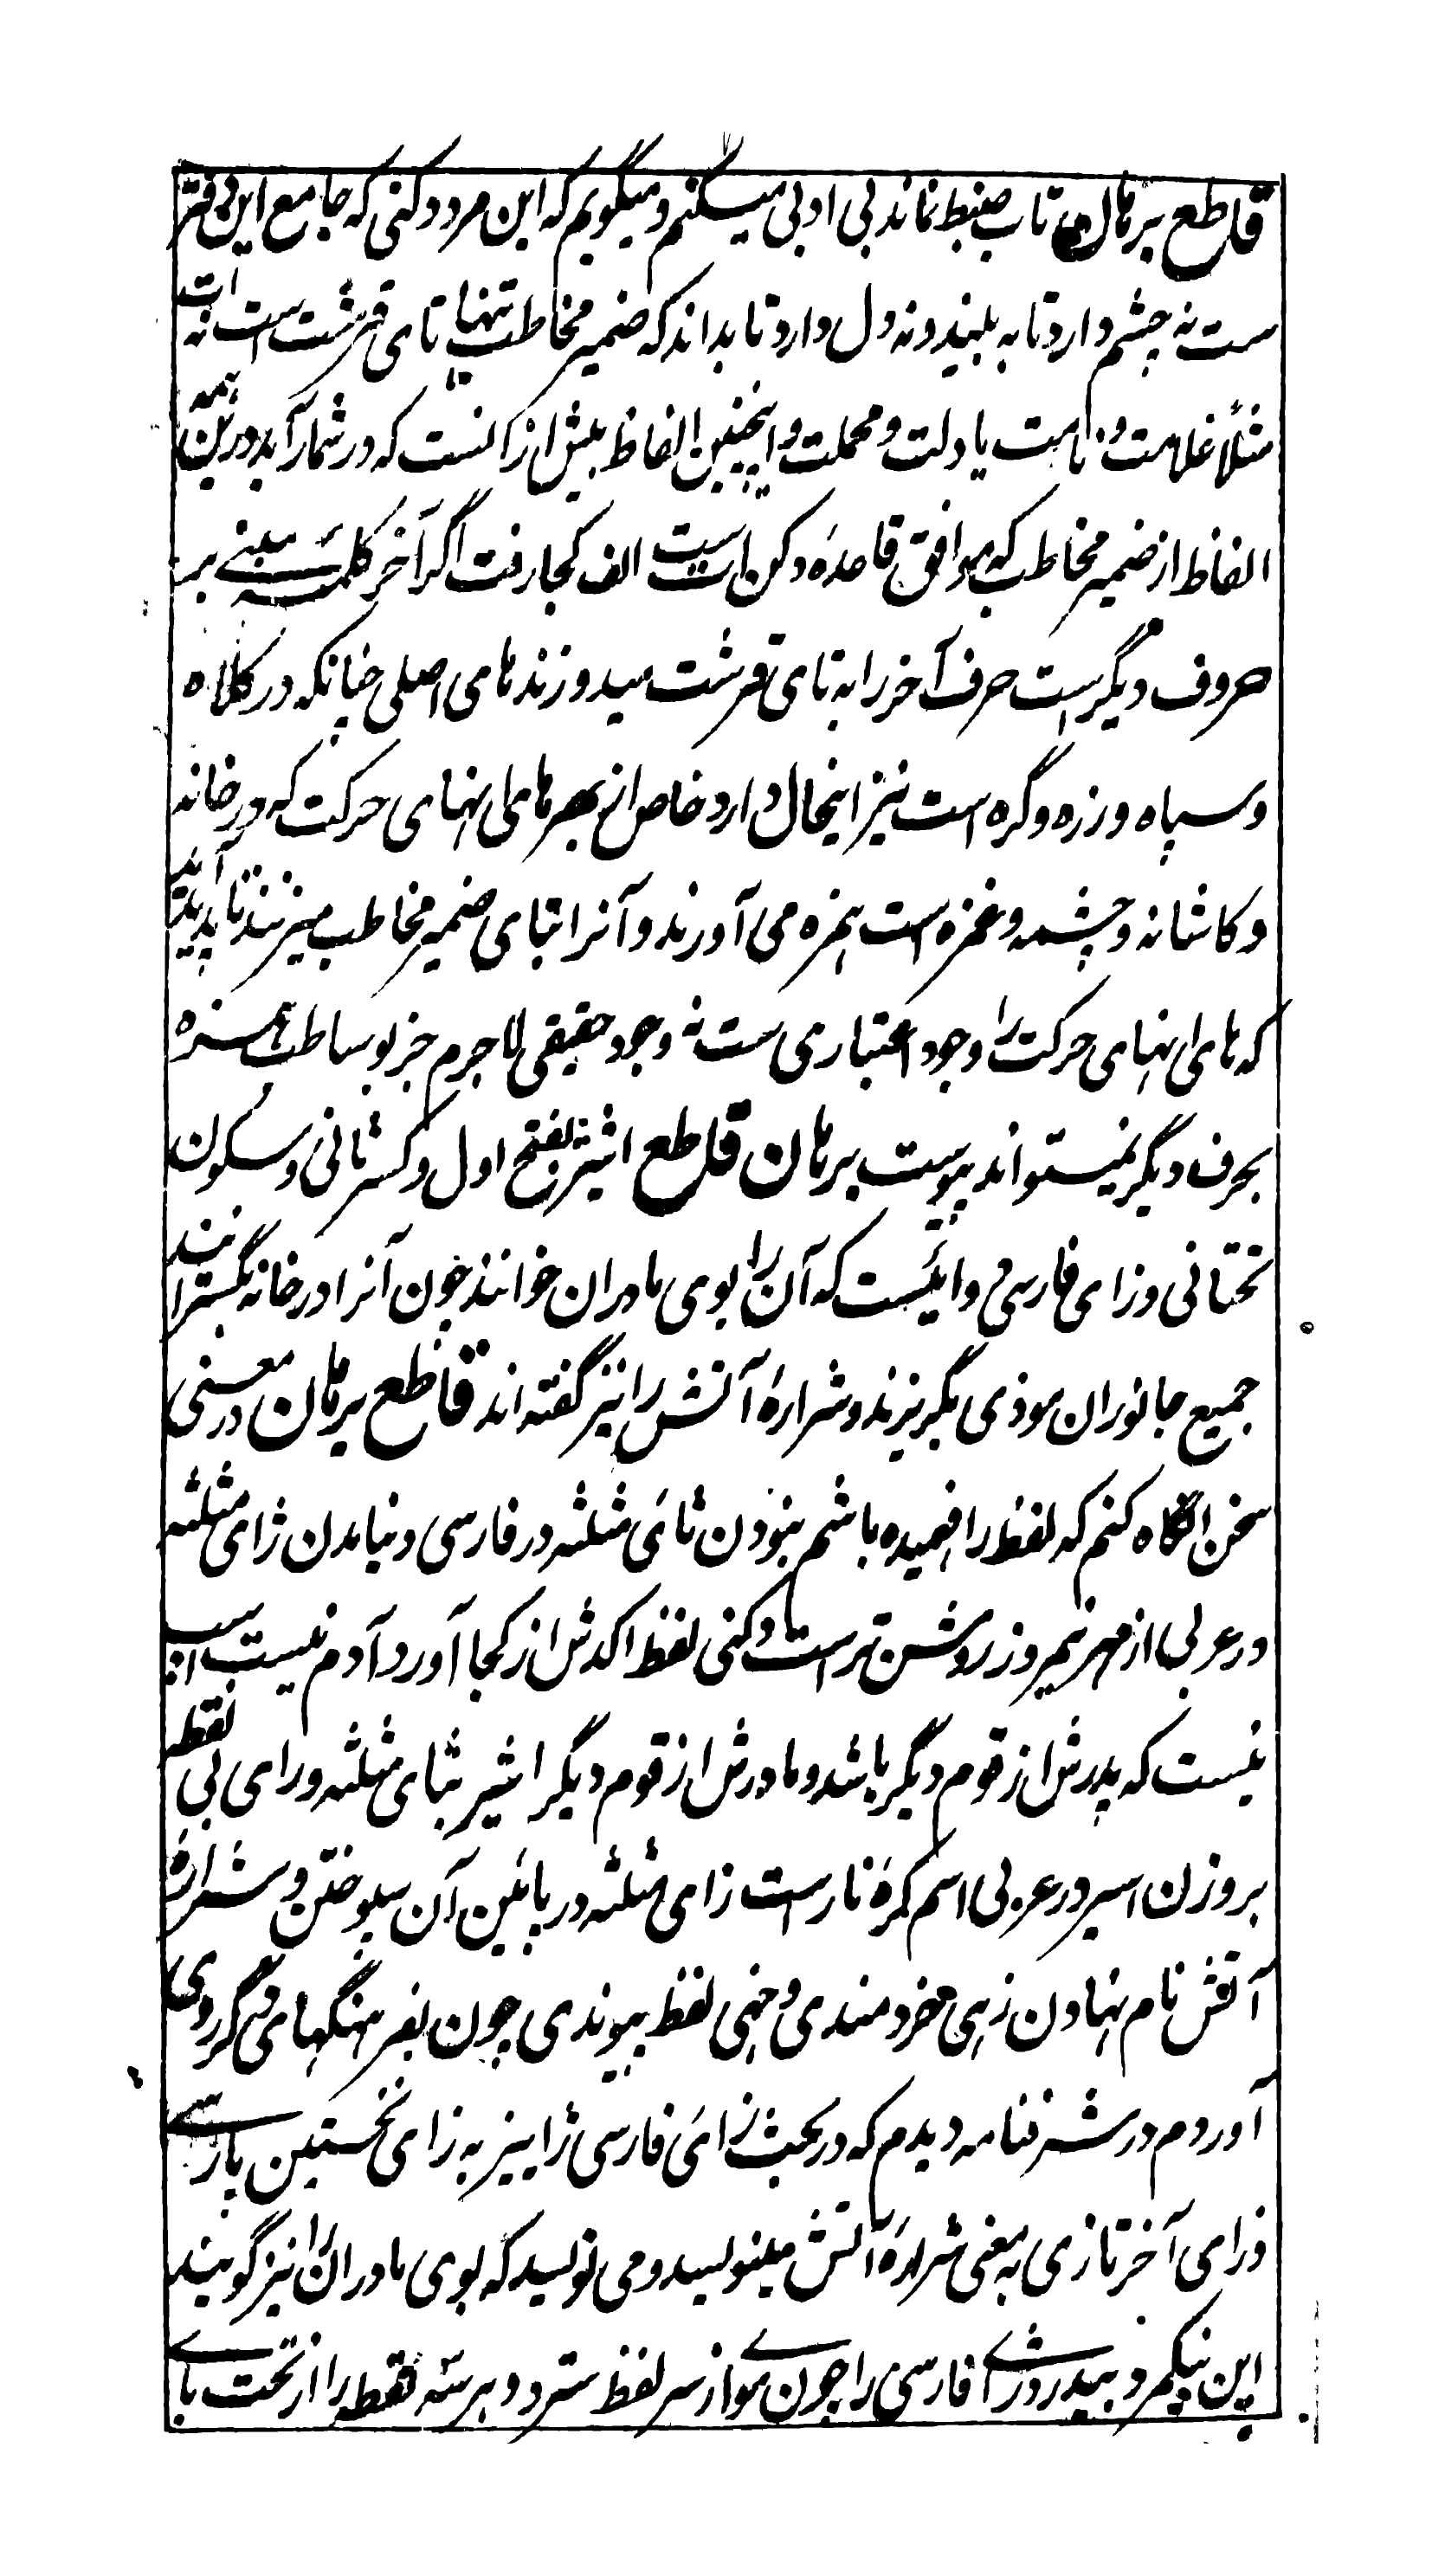 قاطع برهان تاب ضبط نماند بی ادبی میکنم و میگویم که این مرد دکنی که جامع این دفتر
ست نه چشم دارد تا به بیند و نه دل دارد تا بداند که ضمیر مخاطب تنها تای قرشت ست نه ات
مثلا غلامت و نامت یا دلت و محملت و اینچنین الفاظ بیش ازانست که در شمار آید درین همه
الفاظ از ضمیر مخاطب که موافق قاعده دکن ات است الف کجا رفت اگر آخر کلمه مبنی بر
حروف دیگرست حرف آخر را به تای قرشت میدوزند های اصلی چنانکه در کلاه
و سپاه و زره و گره است نیز اینحال دارد خاص از بهر های انتهای حرکت که در خانه
و کاشانه و چشمه و غمزه است همزه می آورند و آنرا بتای ضمیر مخاطب میزنند تا پدید آید
که های انتهای حرکت را وجود اعتباری ست نه وجود حقیقی لاجرم جز بوساطت همزه
بحرف دیگر نمیتواند پیوست برهان قاطع اثیژ بفتح اول و کسر ثانی و سکون
تحتانی و زای فارسی دوائیست که آن را بوی مادران خوانند چون آنرا در خانه بگسترانند
جمیع جانوران موذی بگریزند و شرارهٔ آتش را نیز گفته اند قاطع برهان در معنی
سخن انگاه کنم که لفظ را فهمیده باشم نبودن ثای مثلثه در فارسی و نیامدن ژای مثلثه
در عربی از مهر نیمروز روشن ترست دکنی لفظ اکدش از کجا آورد آدم نیست اسپ
نیست که پدرش از قوم دیگر باشد و مادرش از قوم دیگر اثیر بثای مثلثه و رای بی نقطه
بروزن اسیر در عربی اسم کرهٔ نارست ژای مثلثه در پایین آن سپوختن و شرارهٔ
آتش نام نهادن زهی خردمندی و خهی لفظ پیوندی چون بفرهنگهای دگر روی
آوردم در شرفنامه دیدم که در بحث ژای فارسی ژاییژ به ژای نخستین پارسے
و زای آخر تازی به معنی شرارهٔ آتش مینویسد و می نویسد که بوی مادران را نیز گویند
این نیکمرد بیدرد ژای فارسی را چون موے از سر لفظ سترد و هر سه نقطه را از تحت بای